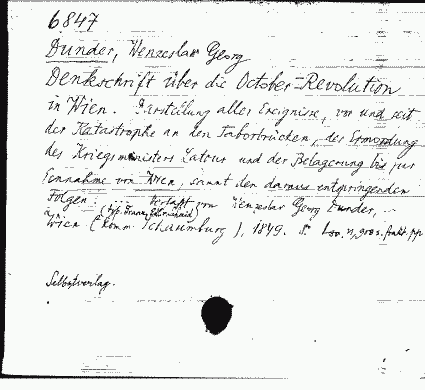 6847
Dunder, Wenzeslaw Georg
Denkschrift über die October-Revolution
in Wien. Darstellung aller Ereignisse, vor und seit
der Katastrophe an den Taborbrücken, der Ermordung
des Kriegsministers Latour und der Belagerung bis zur
Einnahme von Wien, sammt den daraus entspringenden
Folgen. ... Verfaßt von Wenzeslav Georg Dunder,
Wien (Komm. Schaumburg), 1849. 8°
Selbstverlag.